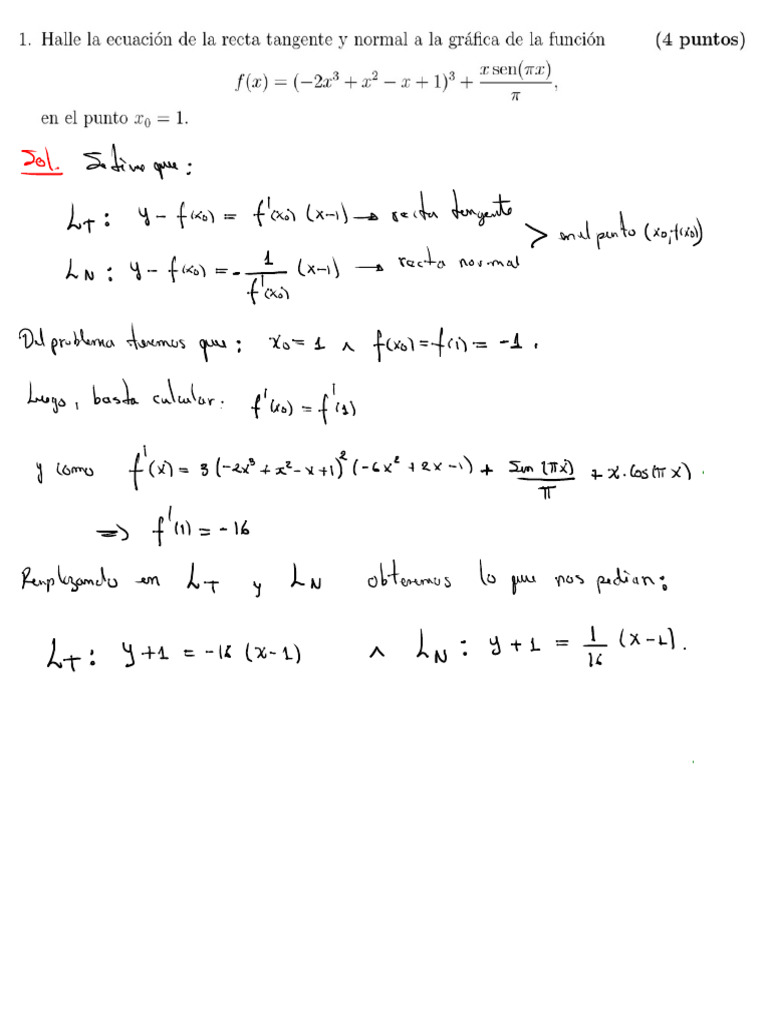 1. Halle la ecuación de la recta tangente y normal a la gráfica de la función (4 puntos)
f(x) = (−2x³ + x² − x + 1)³ + x sen(πx)/π,
en el punto x₀ = 1.
Sol. Se tiene que:
L_T : y − f(x₀) = f'(x₀) (x−1) → recta tangente
> en el punto (x₀, f(x₀))
L_N : y − f(x₀) = − 1/f'(x₀) (x−1) → recta normal
Del problema tenemos que: x₀ = 1 ∧ f(x₀) = f(1) = −1.
Luego, basta calcular: f'(x₀) = f'(1)
y como f'(x) = 3(−2x³ + x² − x + 1)² (−6x² + 2x − 1) + Sen(πx)/π + x·Cos(πx).
⟹ f'(1) = −16
Remplazando en L_T y L_N obtenemos lo que nos pedian:
L_T : y+1 = −16 (x−1) ∧ L_N : y+1 = 1/16 (x−1).